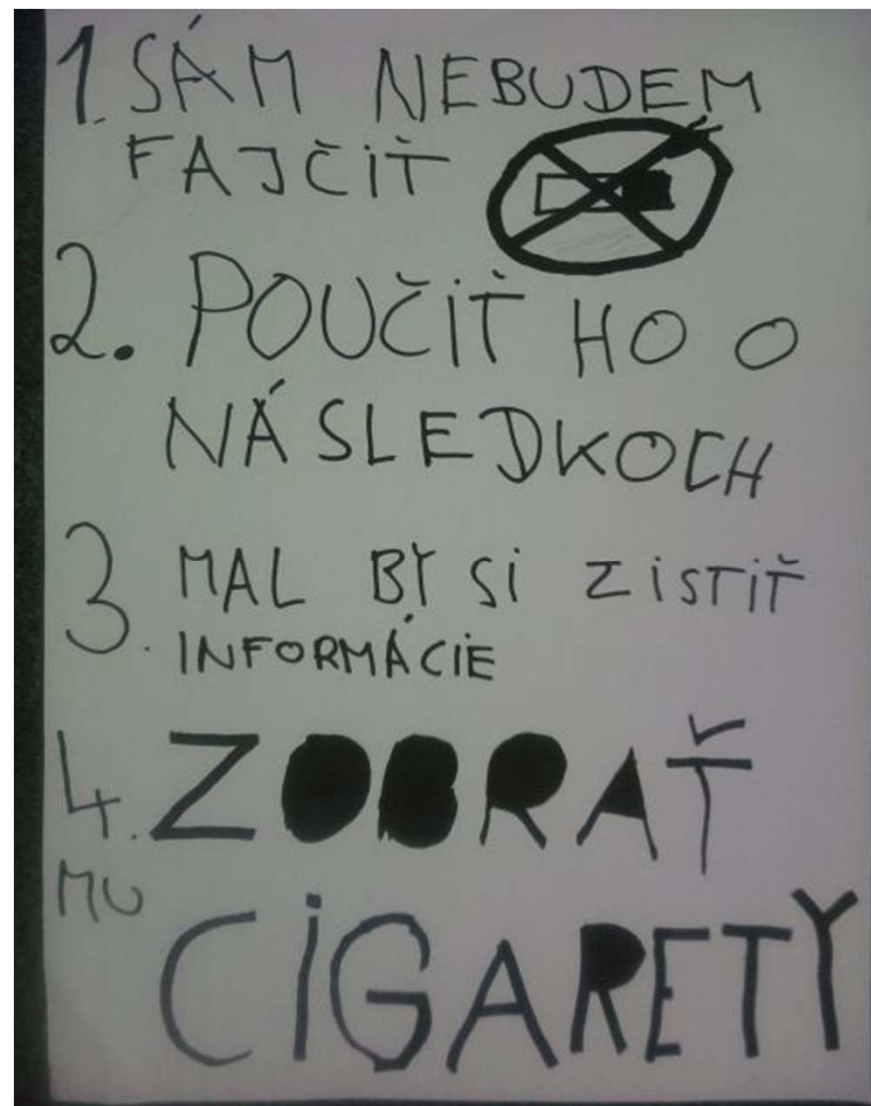 1. SÁM NEBUDEM
FAJČIŤ
2. POUČIŤ HO O
NÁSLEDKOCH
3. MAL BY SI ZISTIŤ
INFORMÁCIE
4. ZOBRAŤ
MU
CIGARETY